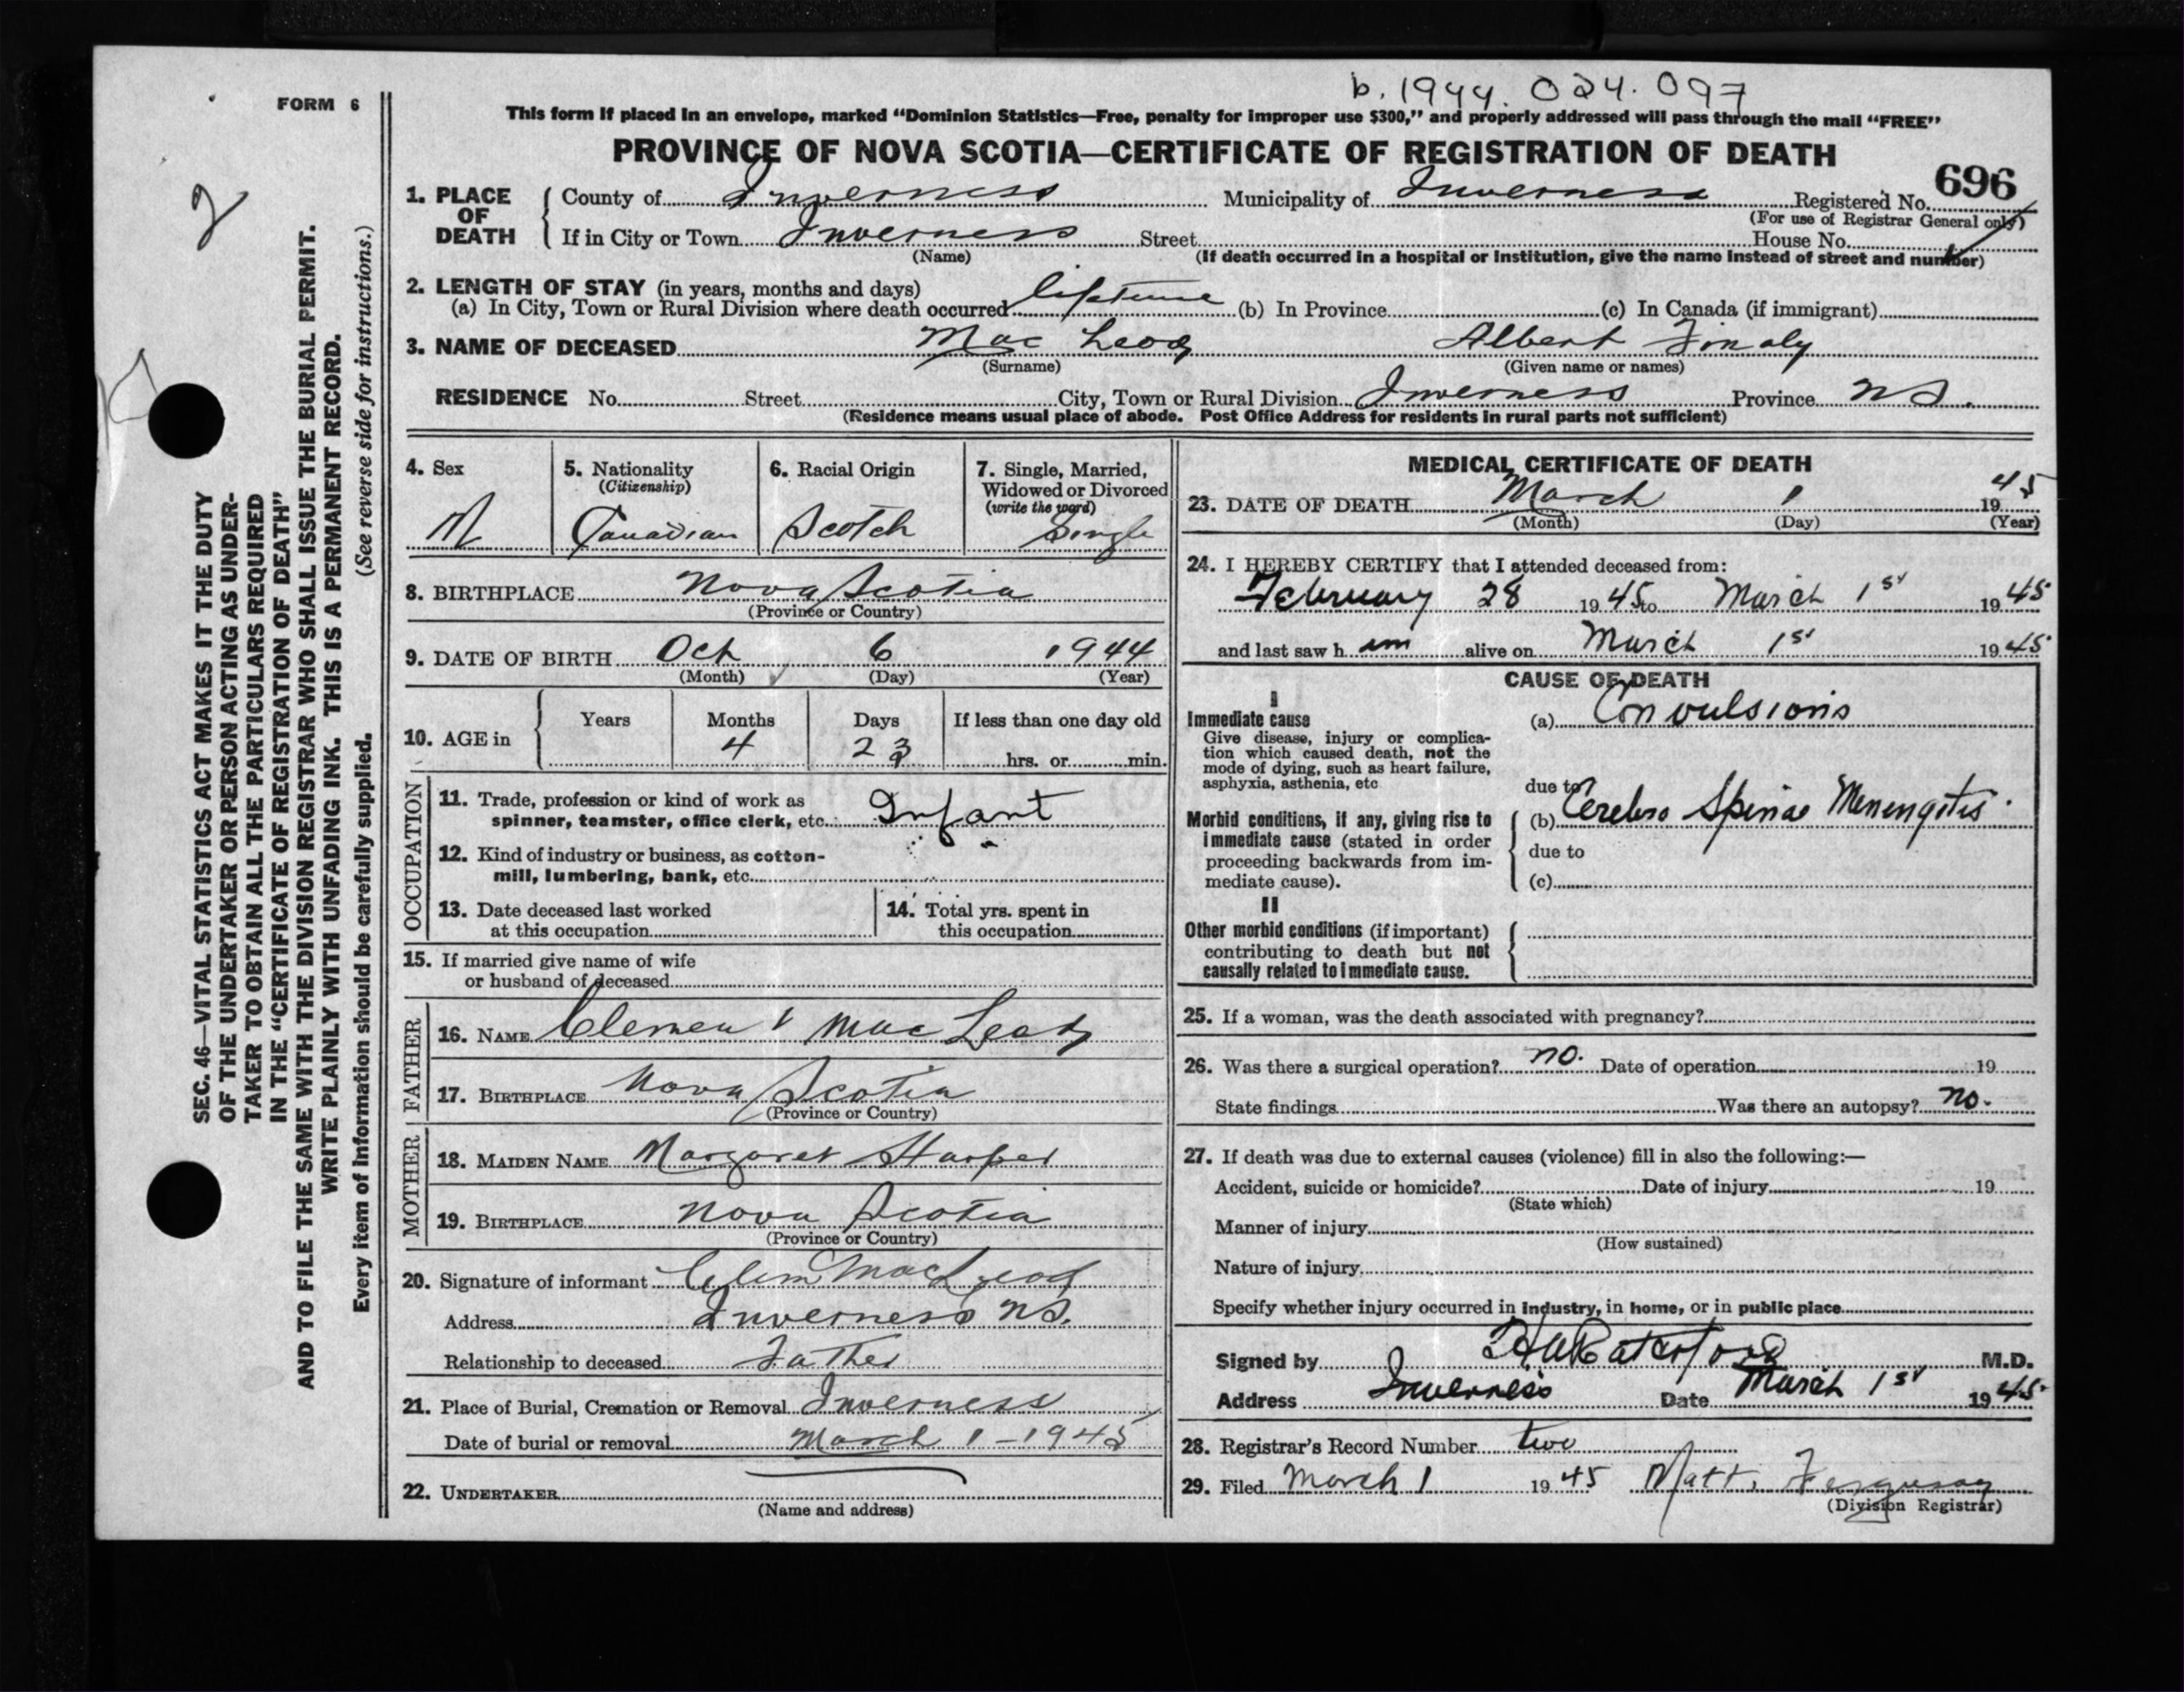 b. 1944. 024. 097
FORM 6
This form if placed in an envelope, marked "Dominion Statistics—Free, penalty for improper use $300," and properly addressed will pass through the mail "FREE"
PROVINCE OF NOVA SCOTIA—CERTIFICATE OF REGISTRATION OF DEATH
696
1. PLACE OF DEATH
County of Inverness Municipality of Inverness Registered No.
(For use of Registrar General only)
If in City or Town Inverness Street House No.
(Name) (If death occurred in a hospital or institution, give the name instead of street and number)
2. LENGTH OF STAY (in years, months and days)
(a) In City, Town or Rural Division where death occurred lifetime (b) In Province (c) In Canada (if immigrant)
3. NAME OF DECEASED Mac Leod Albert Finaly
(Surname) (Given name or names)
RESIDENCE No. Street City, Town or Rural Division Inverness Province N.S.
(Residence means usual place of abode. Post Office Address for residents in rural parts not sufficient)
4. Sex
M
5. Nationality
(Citizenship)
Canadian
6. Racial Origin
Scotch
7. Single, Married,
Widowed or Divorced
(write the word)
Single
8. BIRTHPLACE Nova Scotia
(Province or Country)
9. DATE OF BIRTH Oct 6 1944
(Month) (Day) (Year)
10. AGE in
Years Months Days If less than one day old
4 23
hrs. or min.
OCCUPATION
11. Trade, profession or kind of work as
spinner, teamster, office clerk, etc. Infant
12. Kind of industry or business, as cotton-
mill, lumbering, bank, etc.
13. Date deceased last worked
at this occupation
14. Total yrs. spent in
this occupation
15. If married give name of wife
or husband of deceased
FATHER
16. NAME Clement Mac Leod
17. BIRTHPLACE Nova Scotia
(Province or Country)
MOTHER
18. MAIDEN NAME Margaret Harper
19. BIRTHPLACE Nova Scotia
(Province or Country)
20. Signature of informant Clem MacLeod
Address Inverness N.S.
Relationship to deceased Father
21. Place of Burial, Cremation or Removal Inverness
Date of burial or removal March 1 - 1945
22. UNDERTAKER
(Name and address)
MEDICAL CERTIFICATE OF DEATH
23. DATE OF DEATH March 1 1945
(Month) (Day) (Year)
24. I HEREBY CERTIFY that I attended deceased from:
February 28 1945 to March 1st 1945
and last saw h im alive on March 1st 1945
CAUSE OF DEATH
I
Immediate cause
Give disease, injury or complica-
tion which caused death, not the
mode of dying, such as heart failure,
asphyxia, asthenia, etc
(a) Convulsions
due to
Morbid conditions, if any, giving rise to
immediate cause (stated in order
proceeding backwards from im-
mediate cause).
(b) Cerebro Spinal Meningitis.
due to
(c)
II
Other morbid conditions (if important)
contributing to death but not
causally related to immediate cause.
25. If a woman, was the death associated with pregnancy?
26. Was there a surgical operation? no. Date of operation 19
State findings Was there an autopsy? no.
27. If death was due to external causes (violence) fill in also the following:—
Accident, suicide or homicide? Date of injury 19
(State which)
Manner of injury
(How sustained)
Nature of injury
Specify whether injury occurred in industry, in home, or in public place
Signed by M.D.
Address Inverness Date March 1st 1945
28. Registrar's Record Number two
29. Filed March 1 1945 Matt. Ferguson
(Division Registrar)
2
SEC. 46—VITAL STATISTICS ACT MAKES IT THE DUTY
OF THE UNDERTAKER OR PERSON ACTING AS UNDER-
TAKER TO OBTAIN ALL THE PARTICULARS REQUIRED
IN THE "CERTIFICATE OF REGISTRATION OF DEATH"
AND TO FILE THE SAME WITH THE DIVISION REGISTRAR WHO SHALL ISSUE THE BURIAL PERMIT.
WRITE PLAINLY WITH UNFADING INK. THIS IS A PERMANENT RECORD.
Every item of information should be carefully supplied. (See reverse side for instructions.)